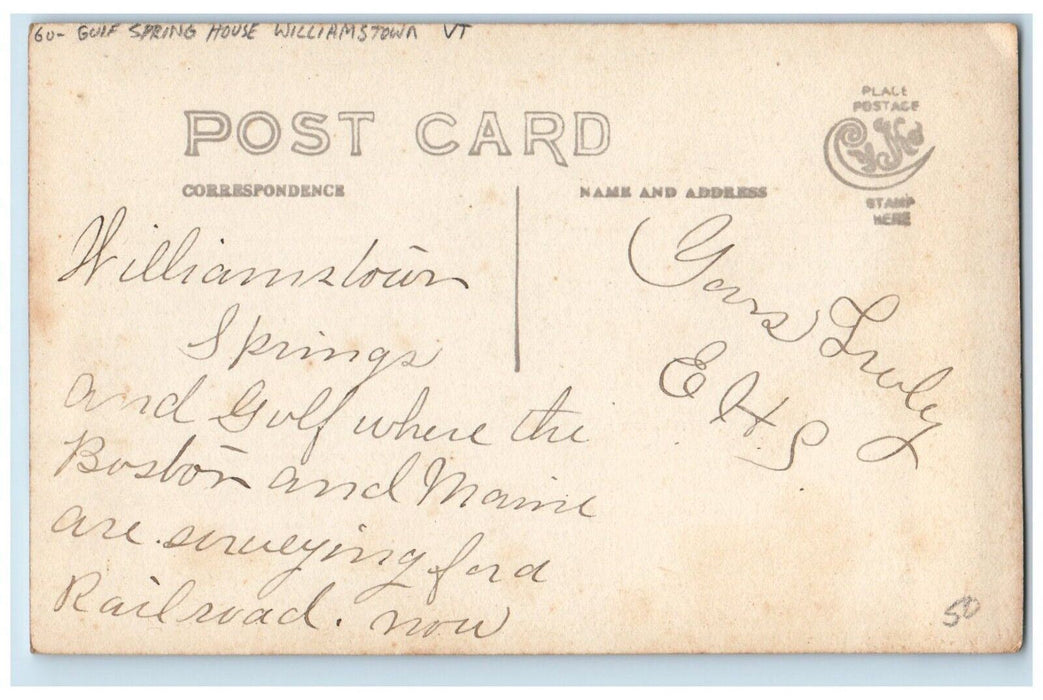 60- GULF SPRING HOUSE WILLIAMSTOWN VT
POST CARD
PLACE
POSTAGE
STAMP
HERE
CORRESPONDENCE
NAME AND ADDRESS
Williamstown
Springs
and Golf where the
Boston and Maine
are surveying for a
Railroad. now
Yours Truly
E H S
50